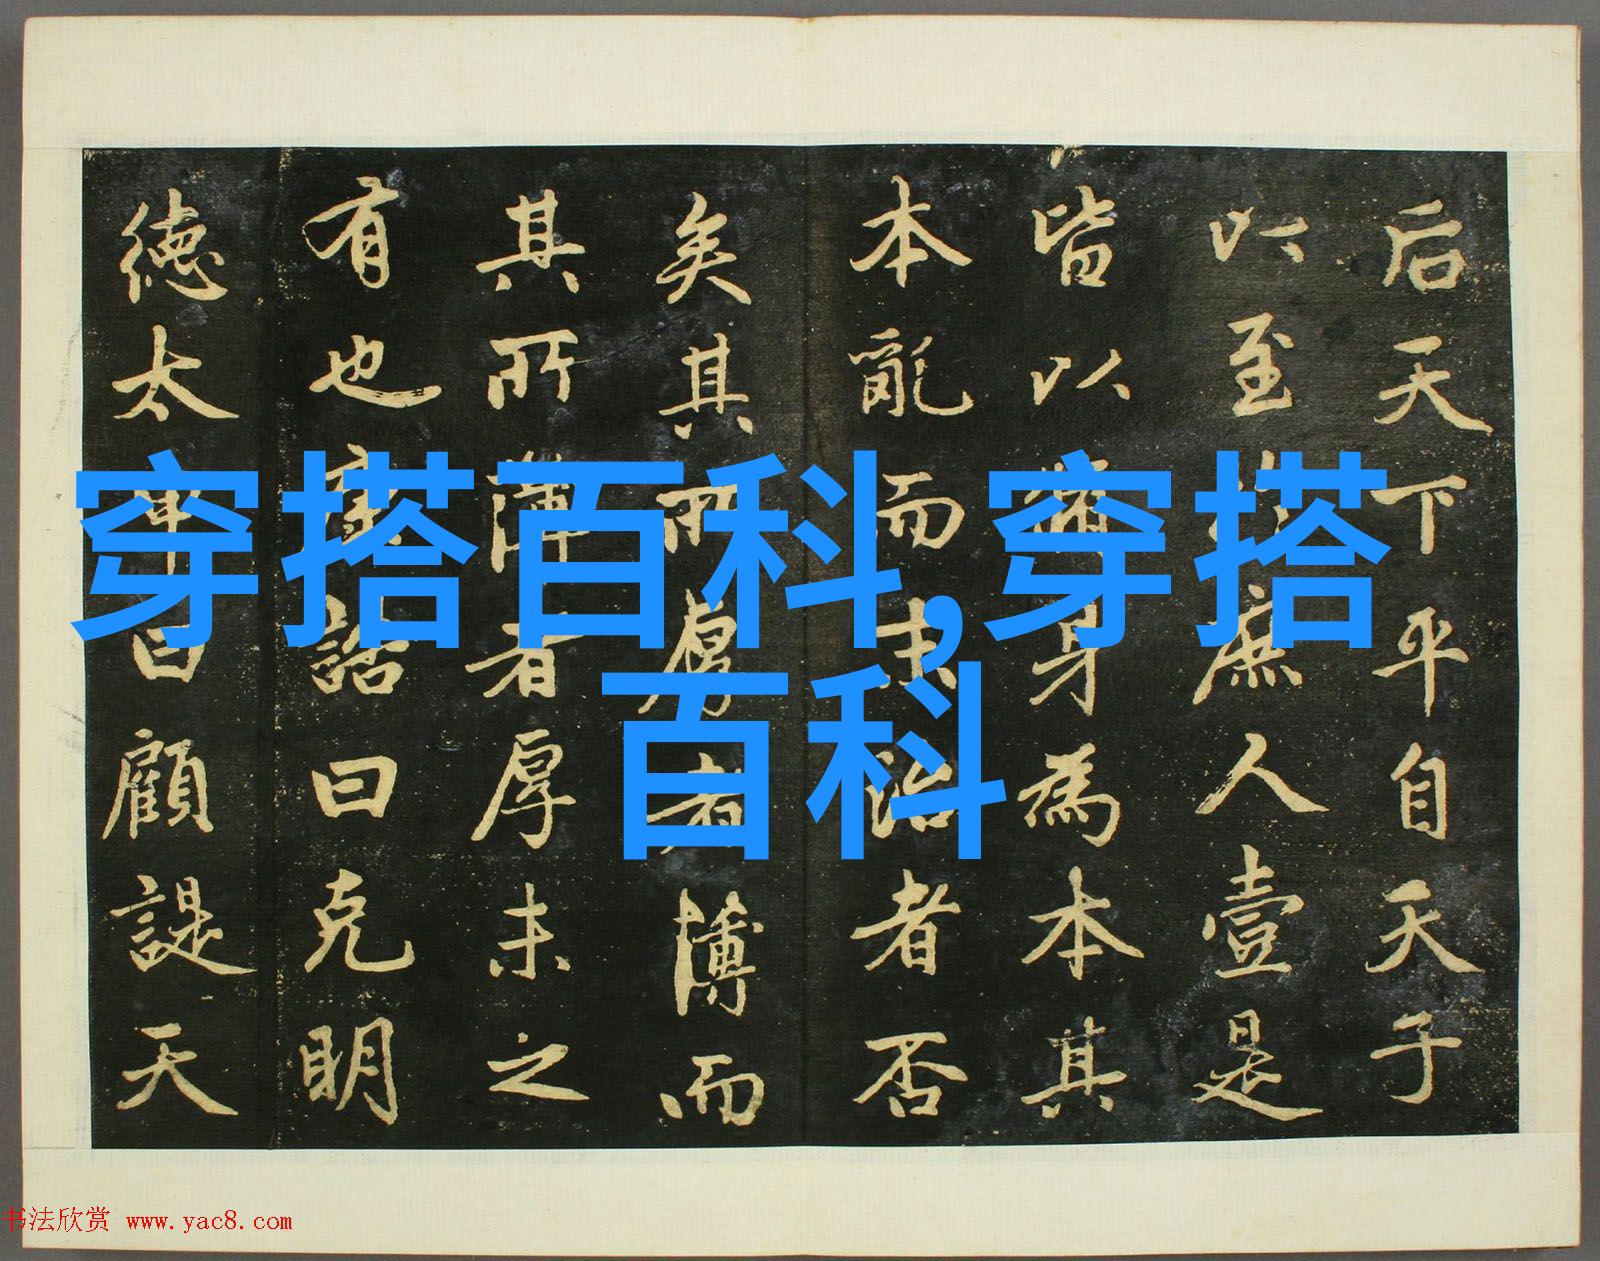 后天下平自天子
以至於庶人壹是
皆以脩身為本其
本亂而末治者否
矣其所厚者薄而
其所薄者厚未之
有也康誥曰克明
德太甲曰顧諟天
穿搭百科,穿搭
百科
书法欣赏 www.yac8.com